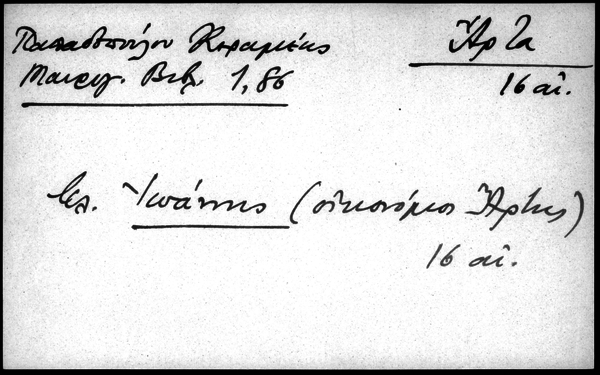 Παπαδοπούλου Κεραμέως
Μαυρογ. Βιβλ. 1,86
Ἄρτα
16 αἰ.
Ἰωάννης (οἰκονόμος Ἄρτης)
16 αἰ.